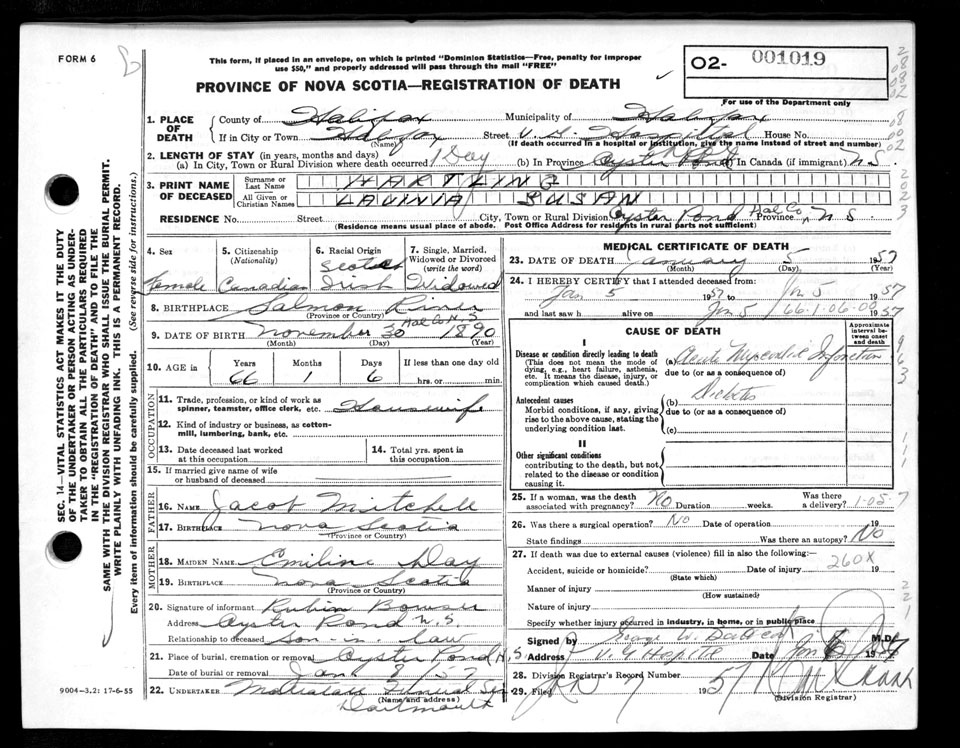 FORM 6
This form, if placed in an envelope, on which is printed "Dominion Statistics—Free, penalty for improper
use $50," and properly addressed will pass through the mail "FREE"
O2- 001019
PROVINCE OF NOVA SCOTIA—REGISTRATION OF DEATH
For use of the Department only
1. PLACE OF DEATH
County of Halifax Municipality of Halifax
If in City or Town Halifax Street V. G. Hospital House No.
(Name) (If death occurred in a hospital or institution, give the name instead of street and number)
2. LENGTH OF STAY (in years, months and days)
(a) In City, Town or Rural Division where death occurred 1 Day (b) In Province Oyster Pond In Canada (if immigrant) N.S.
3. PRINT NAME OF DECEASED
Surname or Last Name HARTLING
All Given or Christian Names LAVINIA SUSAN
RESIDENCE No. Street City, Town or Rural Division Oyster Pond Hal Co Province N S
(Residence means usual place of abode. Post Office Address for residents in rural parts not sufficient)
4. Sex Female
5. Citizenship (Nationality) Canadian
6. Racial Origin Scotch Irish
7. Single, Married, Widowed or Divorced (write the word) Widowed
8. BIRTHPLACE Salmon River Hal Co N S
(Province or Country)
9. DATE OF BIRTH November 30 1890
(Month) (Day) (Year)
10. AGE in Years 66 Months 1 Days 6 If less than one day old
hrs. or min.
OCCUPATION
11. Trade, profession or kind of work as spinner, teamster, office clerk, etc. Housewife
12. Kind of industry or business, as cotton-mill, lumbering, bank, etc.
13. Date deceased last worked at this occupation
14. Total yrs. spent in this occupation
15. If married give name of wife or husband of deceased
FATHER
16. NAME Jacob Mitchell
17. BIRTHPLACE Nova Scotia
(Province or Country)
MOTHER
18. MAIDEN NAME Emiline Day
19. BIRTHPLACE Nova Scotia
(Province or Country)
20. Signature of informant Rubin Bowser
Address Oyster Pond N.S.
Relationship to deceased Son-in-law
21. Place of burial, cremation or removal Oyster Pond N.S.
Date of burial or removal Jan 8 / 57
22. UNDERTAKER Funeral
(Name and address)
Dartmouth
MEDICAL CERTIFICATE OF DEATH
23. DATE OF DEATH January 5 1957
(Month) (Day) (Year)
24. I HEREBY CERTIFY that I attended deceased from
Jan 5 1957 to Jan 5 1957
and last saw h alive on Jan 5 1957
66-1-06-00
CAUSE OF DEATH
Approximate interval between onset and death
I
Disease or condition directly leading to death
(This does not mean the mode of dying, e.g., heart failure, asthenia, etc. It means the disease, injury, or complication which caused death.)
(a) Acute Myocardial Infarction
due to (or as a consequence of)
Antecedent causes
Morbid conditions, if any, giving rise to the above cause, stating the underlying condition last.
(b) Diabetes
due to (or as a consequence of)
(c)
II
Other significant conditions
contributing to the death, but not related to the disease or condition causing it.
25. If a woman, was the death associated with pregnancy? No Duration weeks. Was there a delivery?
26. Was there a surgical operation? No Date of operation 19
State findings Was there an autopsy? No
27. If death was due to external causes (violence) fill in also the following:—
Accident, suicide or homicide? Date of injury 19
(State which)
260X
Manner of injury
(How sustained)
Nature of injury
Specify whether injury occurred in industry, in home, or in public place
Signed by George W. M.D.
Address V. G. Date Jan
28. Division Registrar's Record Number
29. Filed Jan 7 1957
(Division Registrar)
9004-3.2: 17-6-55
SEC. 14—VITAL STATISTICS ACT MAKES IT THE DUTY
OF THE UNDERTAKER OR PERSON ACTING AS UNDER-
TAKER TO OBTAIN ALL THE PARTICULARS REQUIRED
IN THE "REGISTRATION OF DEATH" AND TO FILE THE
SAME WITH THE DIVISION REGISTRAR WHO SHALL ISSUE THE BURIAL PERMIT.
WRITE PLAINLY WITH UNFADING INK. THIS IS A PERMANENT RECORD.
Every item of information should be carefully supplied. (See reverse side for instructions.)